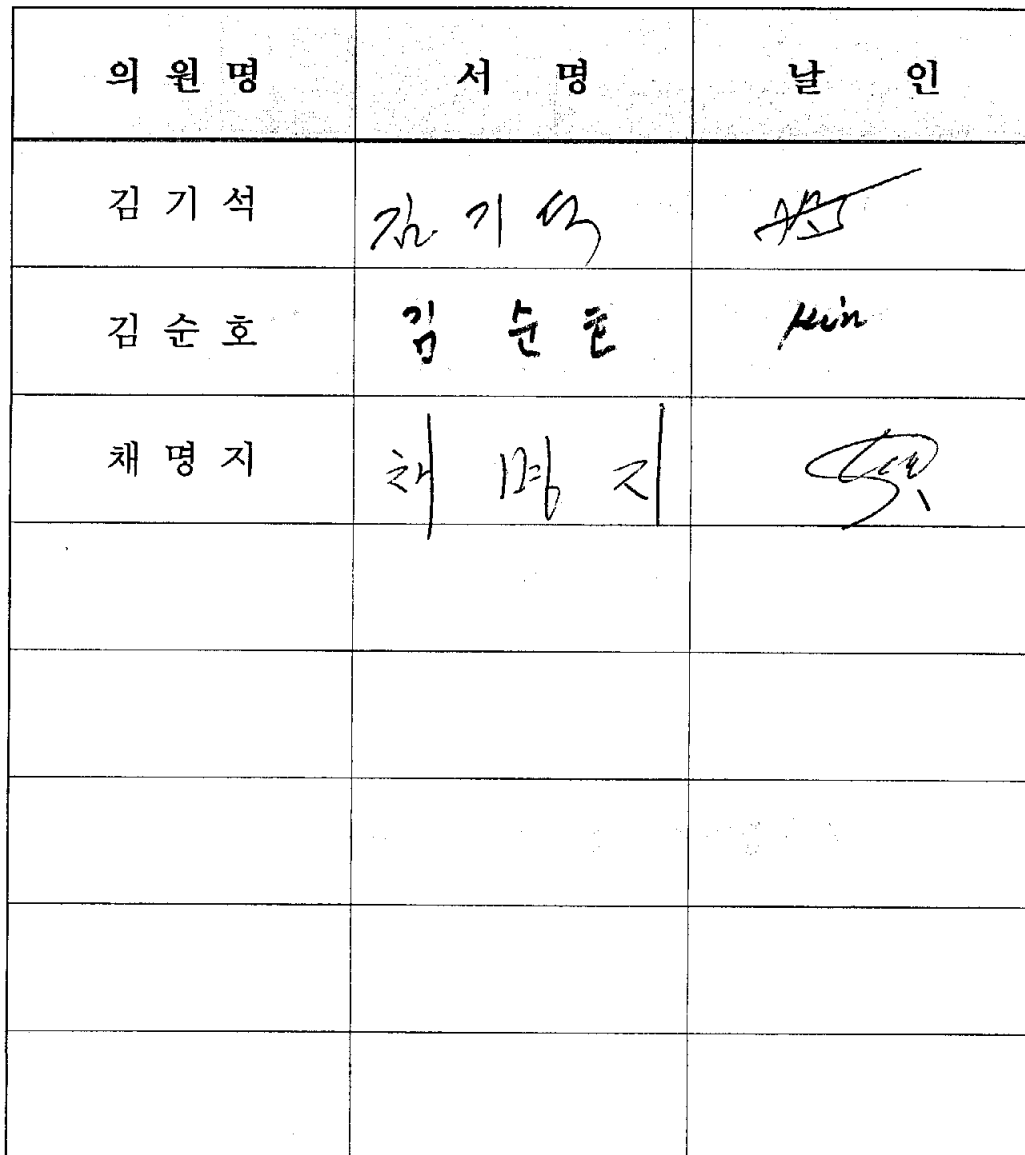 의원명 서명 날인
김기석 김기석
김순호 김순호 Kim
채명지 채명지